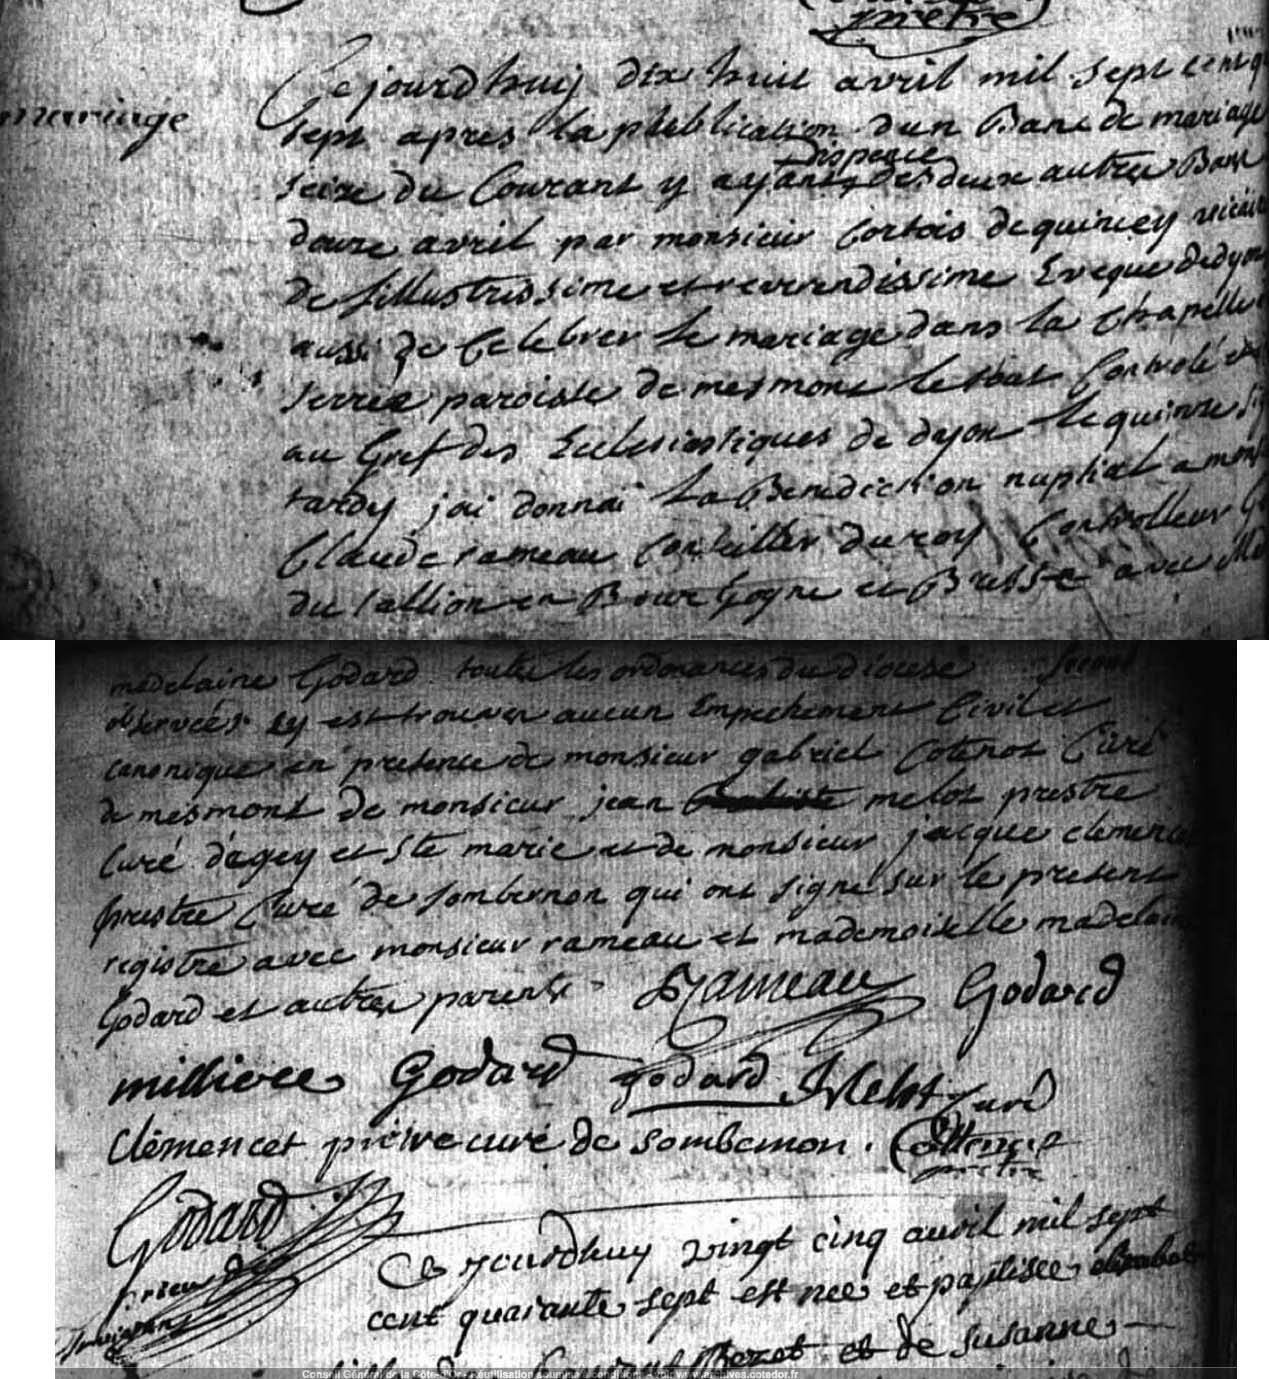 prêtre
mariage
Ce jourdhuy dix huit avril mil sept cent
sept apres la publication dun Banc de mariage
seize du Courant y ayant Dispence des deux autres Banc
douze avril par monsieur Cortois de quincey vicaire
de Lillustrissime et reverendissime Eveque de dyon
aussi de Celebrer le mariage dans la Chapelle
Serrée paroisse de mesmont le tout Controlé
au Gref des Eclesiastiques de dyon le quinze
tardy jai donnai la Benediction nuptial a
Claude rameau Conseiller du roy Controlleur
du tallion en Bourgogne et Bresse avec
madelaine Godard toutes les ordonances du diocese
observées sy est trouver aucun Empechement Civil et
canonique en presence de monsieur gabriel Cotenot Curé
de mesmont de monsieur jean melot prestre
Curé dagey et Ste marie et de monsieur jacque clemencet
prestre Curé de sombernon qui ont signé sur le present
registre avec monsieur rameau et mademoiselle madelaine
Godard et autres parents Rameau Godard
milliere Godard godard Melot Curé
Clémencet prêtre curé de sombernon.
Godard
Ce jourdhuy vingt cinq avril mil sept
cent quarante sept est née et baptisée
et de susanne
Conseil Général de la Côte-d'Or - Réutilisation soumise à conditions - voir www.archives.cotedor.fr